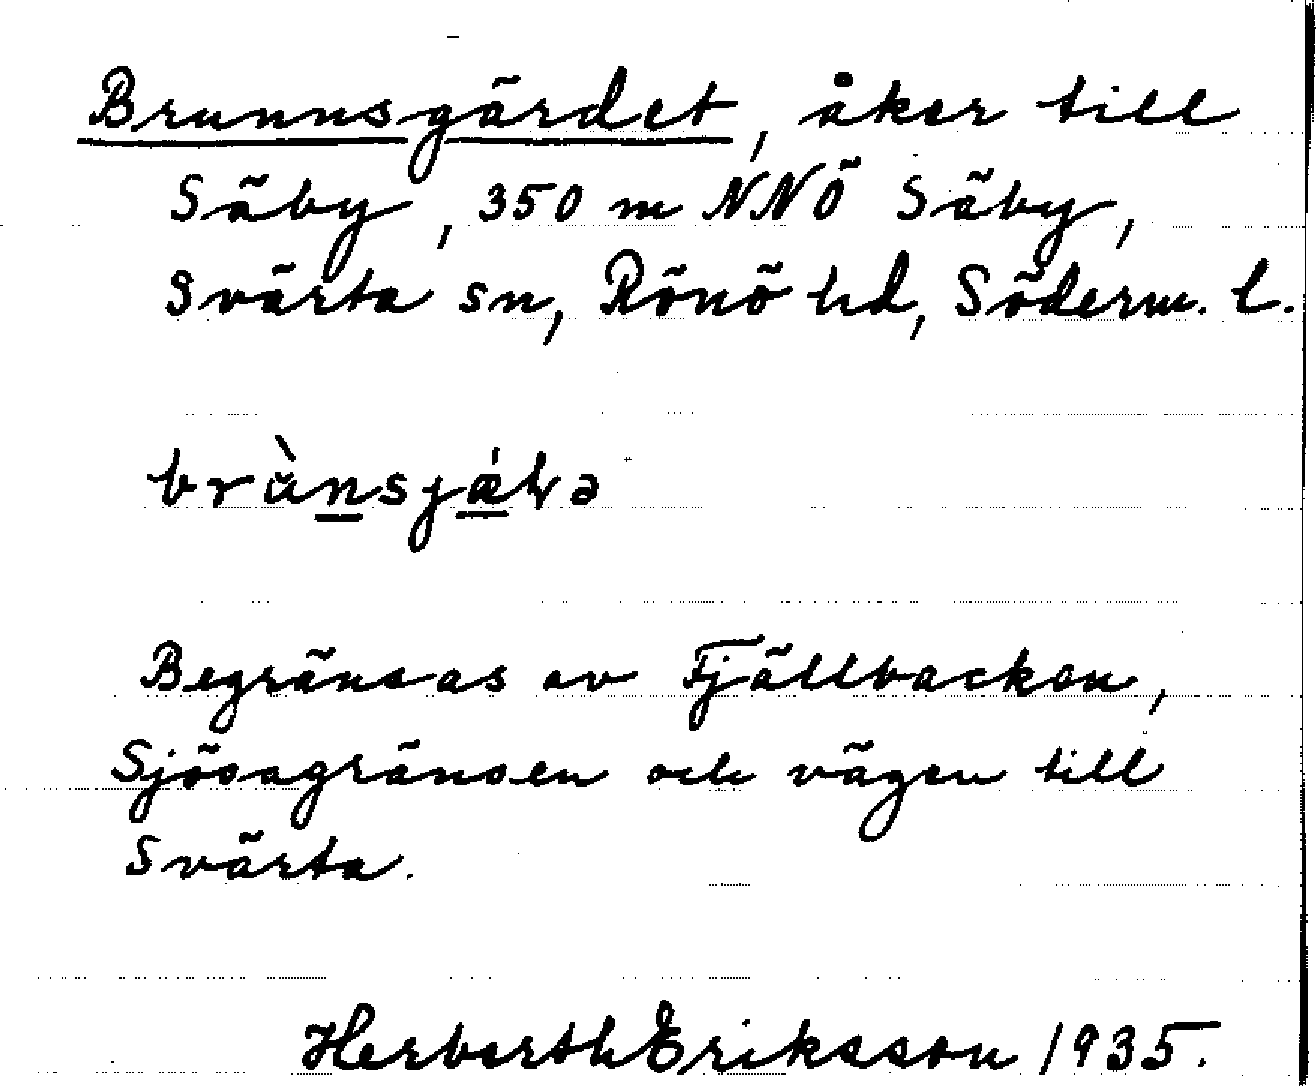 Brunnsgärdet, åker till
Säby, 350 m NNÖ Säby,
Svärta sn, Rönö hd, Söderm. l.
Begränsas av Fjällbacken,
Sjösagränsen och vägen till
Svärta.
Herberth Eriksson 1935.